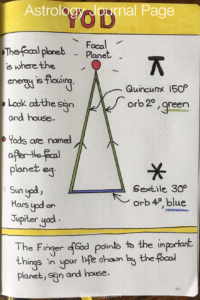 Astrology Journal Page
YOD
• The focal planet
is where the
energy is flowing.
• Look at the sign
and house.
• Yods are named
after the focal
planet eg.
Sun yod,
Mars yod or
Jupiter yod.
Focal
Planet
Quincunx 150°
orb 2°, green
Sextile 30°
orb 4°, blue
The Finger of God points to the important
things in your life shown by the focal
planet, sign and house.